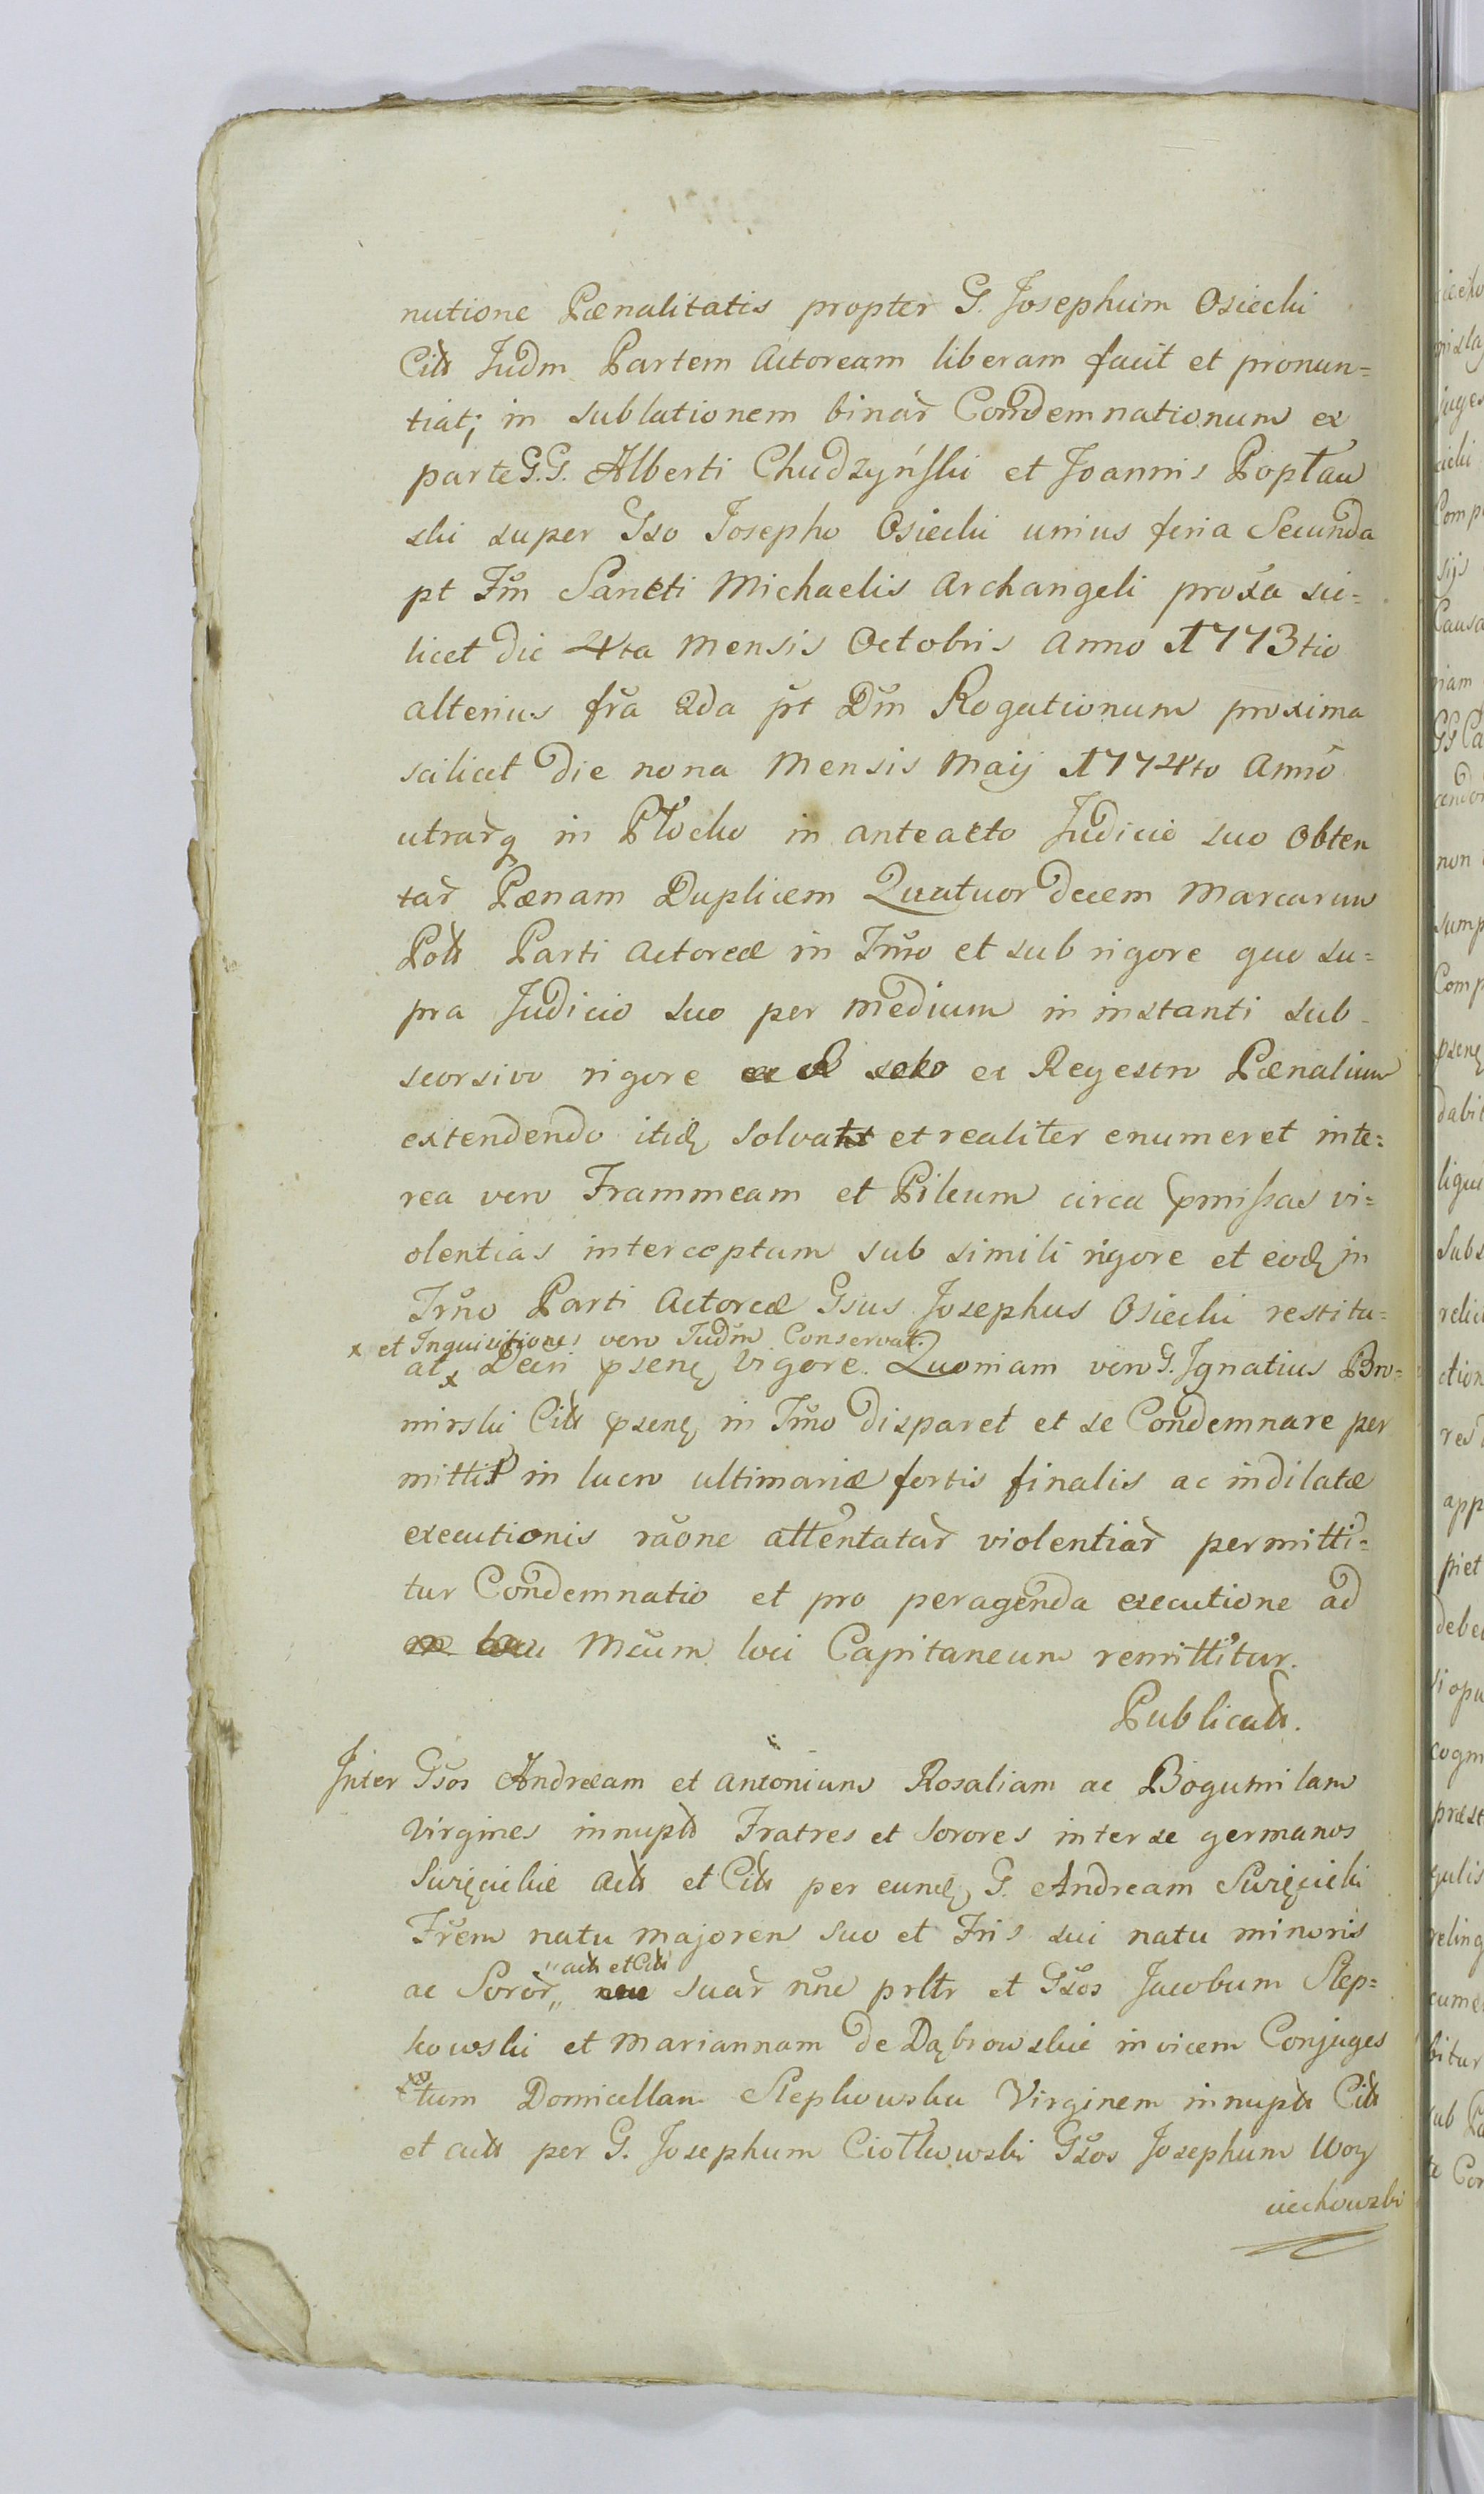 nutione Pænalitatis propter G. Josephum Osiecki
Citt Judm Partem Actoream liberam facit et pronun=
tiat; in sublationem binar Condemnationum ex
parte G.G. Alberti Chudzyński et Joannis Popław
ski super Gso Josepho Osiecki unius feria Secunda
pt Fm Sancti Michaelis Archangeli proxa sci=
licet die 4ta Mensis Octobris Anno 1773tio
alterius fra 2da pt Dm Rogationum proxima
scilicet die nona Mensis Maij 1774to Anno
utrarq in Płocko in anteacto Judicio suo Obten
tar Pænam Duplicem Quatuordecem Marcarum
Pols Parti Actoreæ in Trno et sub rigore quo su=
pra Judicio suo per medium in instanti sub
scorsivo rigore ex Regestro Pænalium
extendendo itidq solvat et realiter enumeret inte=
rea vero Frammeam et Pileum circa pmissas vi=
olentias interceptum sub simili rigore et eodq in
Trno Parti Actoreæ Gsus Josephus Osiecki restitu=
x et Inquisitiones vero Judm Conservat.
at x Decri psenq vigore. Quoniam vero G. Ignatius Bro=
mirski Citt psenq in Trno disparet et se Condemnare per
mittit in lucro ultimariæ fortis finalis ac indilatæ
executionis raone attentatar violentiar permitti=
tur Condemnatio et pro peraganda executione ad
Mcum loci Capitaneum remittitur.
Publicatt.
Inter Gsos Andream et Antonium Rosaliam ac Bogumilam
Virgines innupts Fratres et Sorores inter se germanos
Swięcickie Actt et Citt per eundq G. Andream Swięcicki
Frem natu majorem suo et Fris sui natu minoris
" actt et Citt
ac Soror " suar nne prltr et Gsos Jacobum Step=
kowski et Mariannam de Dąbrowskie invicem Conjuges
tum Domicellam Stepkowska Virginem innupts Citt
et actt per G. Josephum Ciołkowski Gsos Josephum Woy
ciechowski